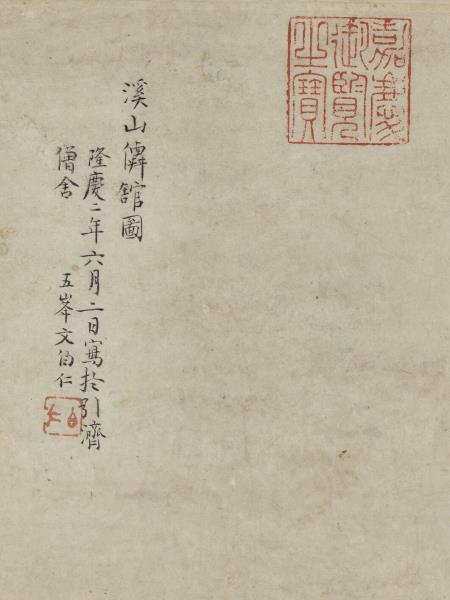 嘉慶
御覽
之寶
溪山僊館圖
隆慶二年六月二日寫扵引濟
僧舍 五峯文伯仁